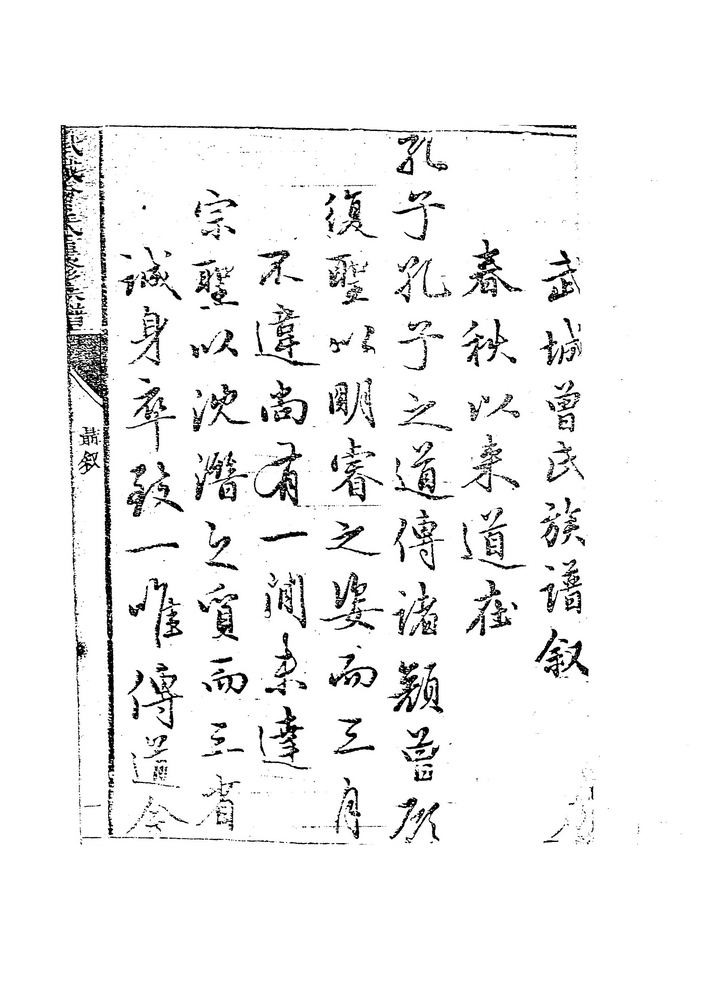 武城曾氏族譜叙
春秋以来道在
孔子孔子之道傳諸顏曾顧
復聖以明睿之姿而三月
不違尚有一間未達
宗聖以沈潛之質而三省
誠身卒致一唯傳道今
武城曾氏重修族譜
叙
一